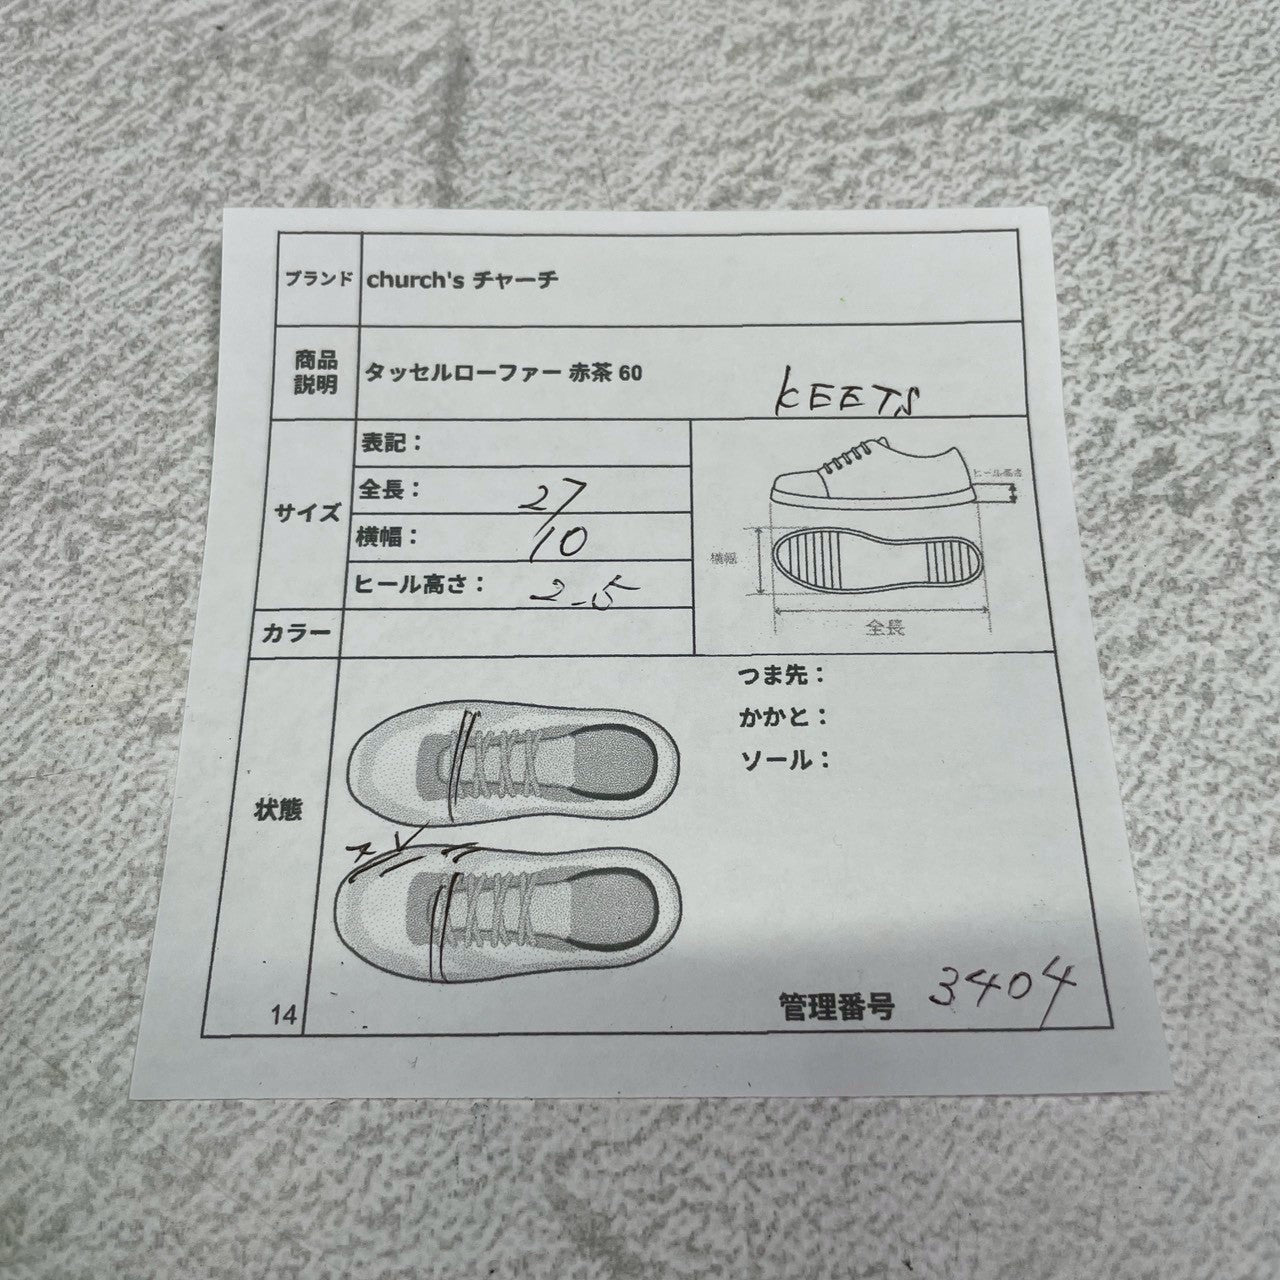 ブランド church's チャーチ
商品説明 タッセルローファー 赤茶 60
KEETS
サイズ
表記：
全長： 27
横幅： 10
ヒール高さ： 2.5
ヒール高さ
横幅
全長
カラー
状態
つま先：
かかと：
ソール：
キ
14
管理番号 3404